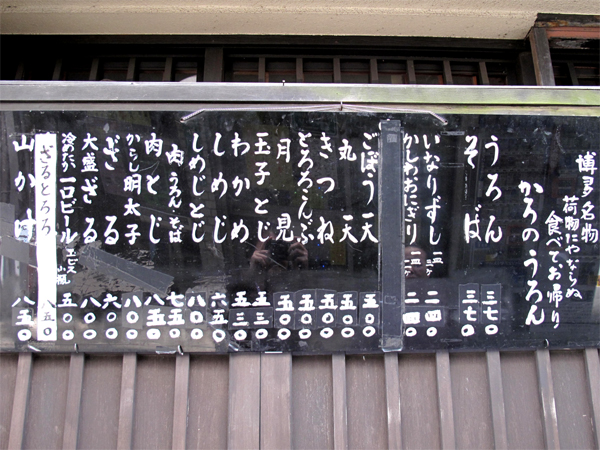 博多名物
荷物にゃならぬ
食べてお帰り
かろのうろん
うろん 三七〇
そば 三七〇
いなりずし 一皿 三ヶ 二四〇
かしわおにぎり 一皿 二ヶ 二四〇
ごぼう天 五〇〇
丸天 五〇〇
きつね 五〇〇
とろろこんぶ 五〇〇
月見 五〇〇
玉子とじ 五三〇
わかめ 五三〇
しめじ 六五〇
しめじとじ 八〇〇
肉うろん・そば 七五〇
肉とじ 八五〇
からし明太子 八〇〇
ざる 六〇〇
大盛ざる 八〇〇
冷めたか一口ビール エビス小瓶 五〇〇
ざるとろろ 八五〇
山かけ 八五〇